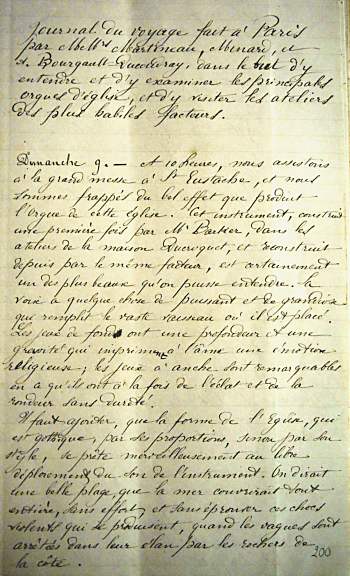 Journal du voyage fait à Paris
par MM.rs Martineau, Menard, et
Bourgault-Ducoudray, dans le but d'y
entendre et d'y examiner les principales
orgues d'église, et d'y visiter les ateliers
des plus habiles facteurs.
Dimanche 9. — A 10 heures, nous assistons
à la grand messe à St Eustache, et nous
sommes frappés du bel effet que produit
l'orgue de cette Eglise. Cet instrument, construit
une première fois par Mr Barker, dans les
ateliers de la maison Ducroquet, et reconstruit
depuis par le même facteur, est certainement
un des plus beaux qu'on puisse entendre. Sa
voix a quelque chose de puissant et de grandiose
qui remplit le vaste vaisseau où il est placé.
Les jeux de fonds ont une profondeur et une
gravité qui impriment à l'âme une émotion
religieuse; les jeux à anche sont remarquables
en ce qu'ils ont à la fois de l'éclat et de la
rondeur sans dureté.
Il faut ajouter, que la forme de l'Eglise, qui
est gothique, par ses proportions, sinon par son
style, se prête merveilleusement au libre
déploiement du son de l'instrument. On dirait
une belle plage que la mer couvrirait tout
entière, sans effort, et sans éprouver ces chocs
violents qui se produisent, quand les vagues sont
arrêtées dans leur élan par les rochers de
la côte.
200